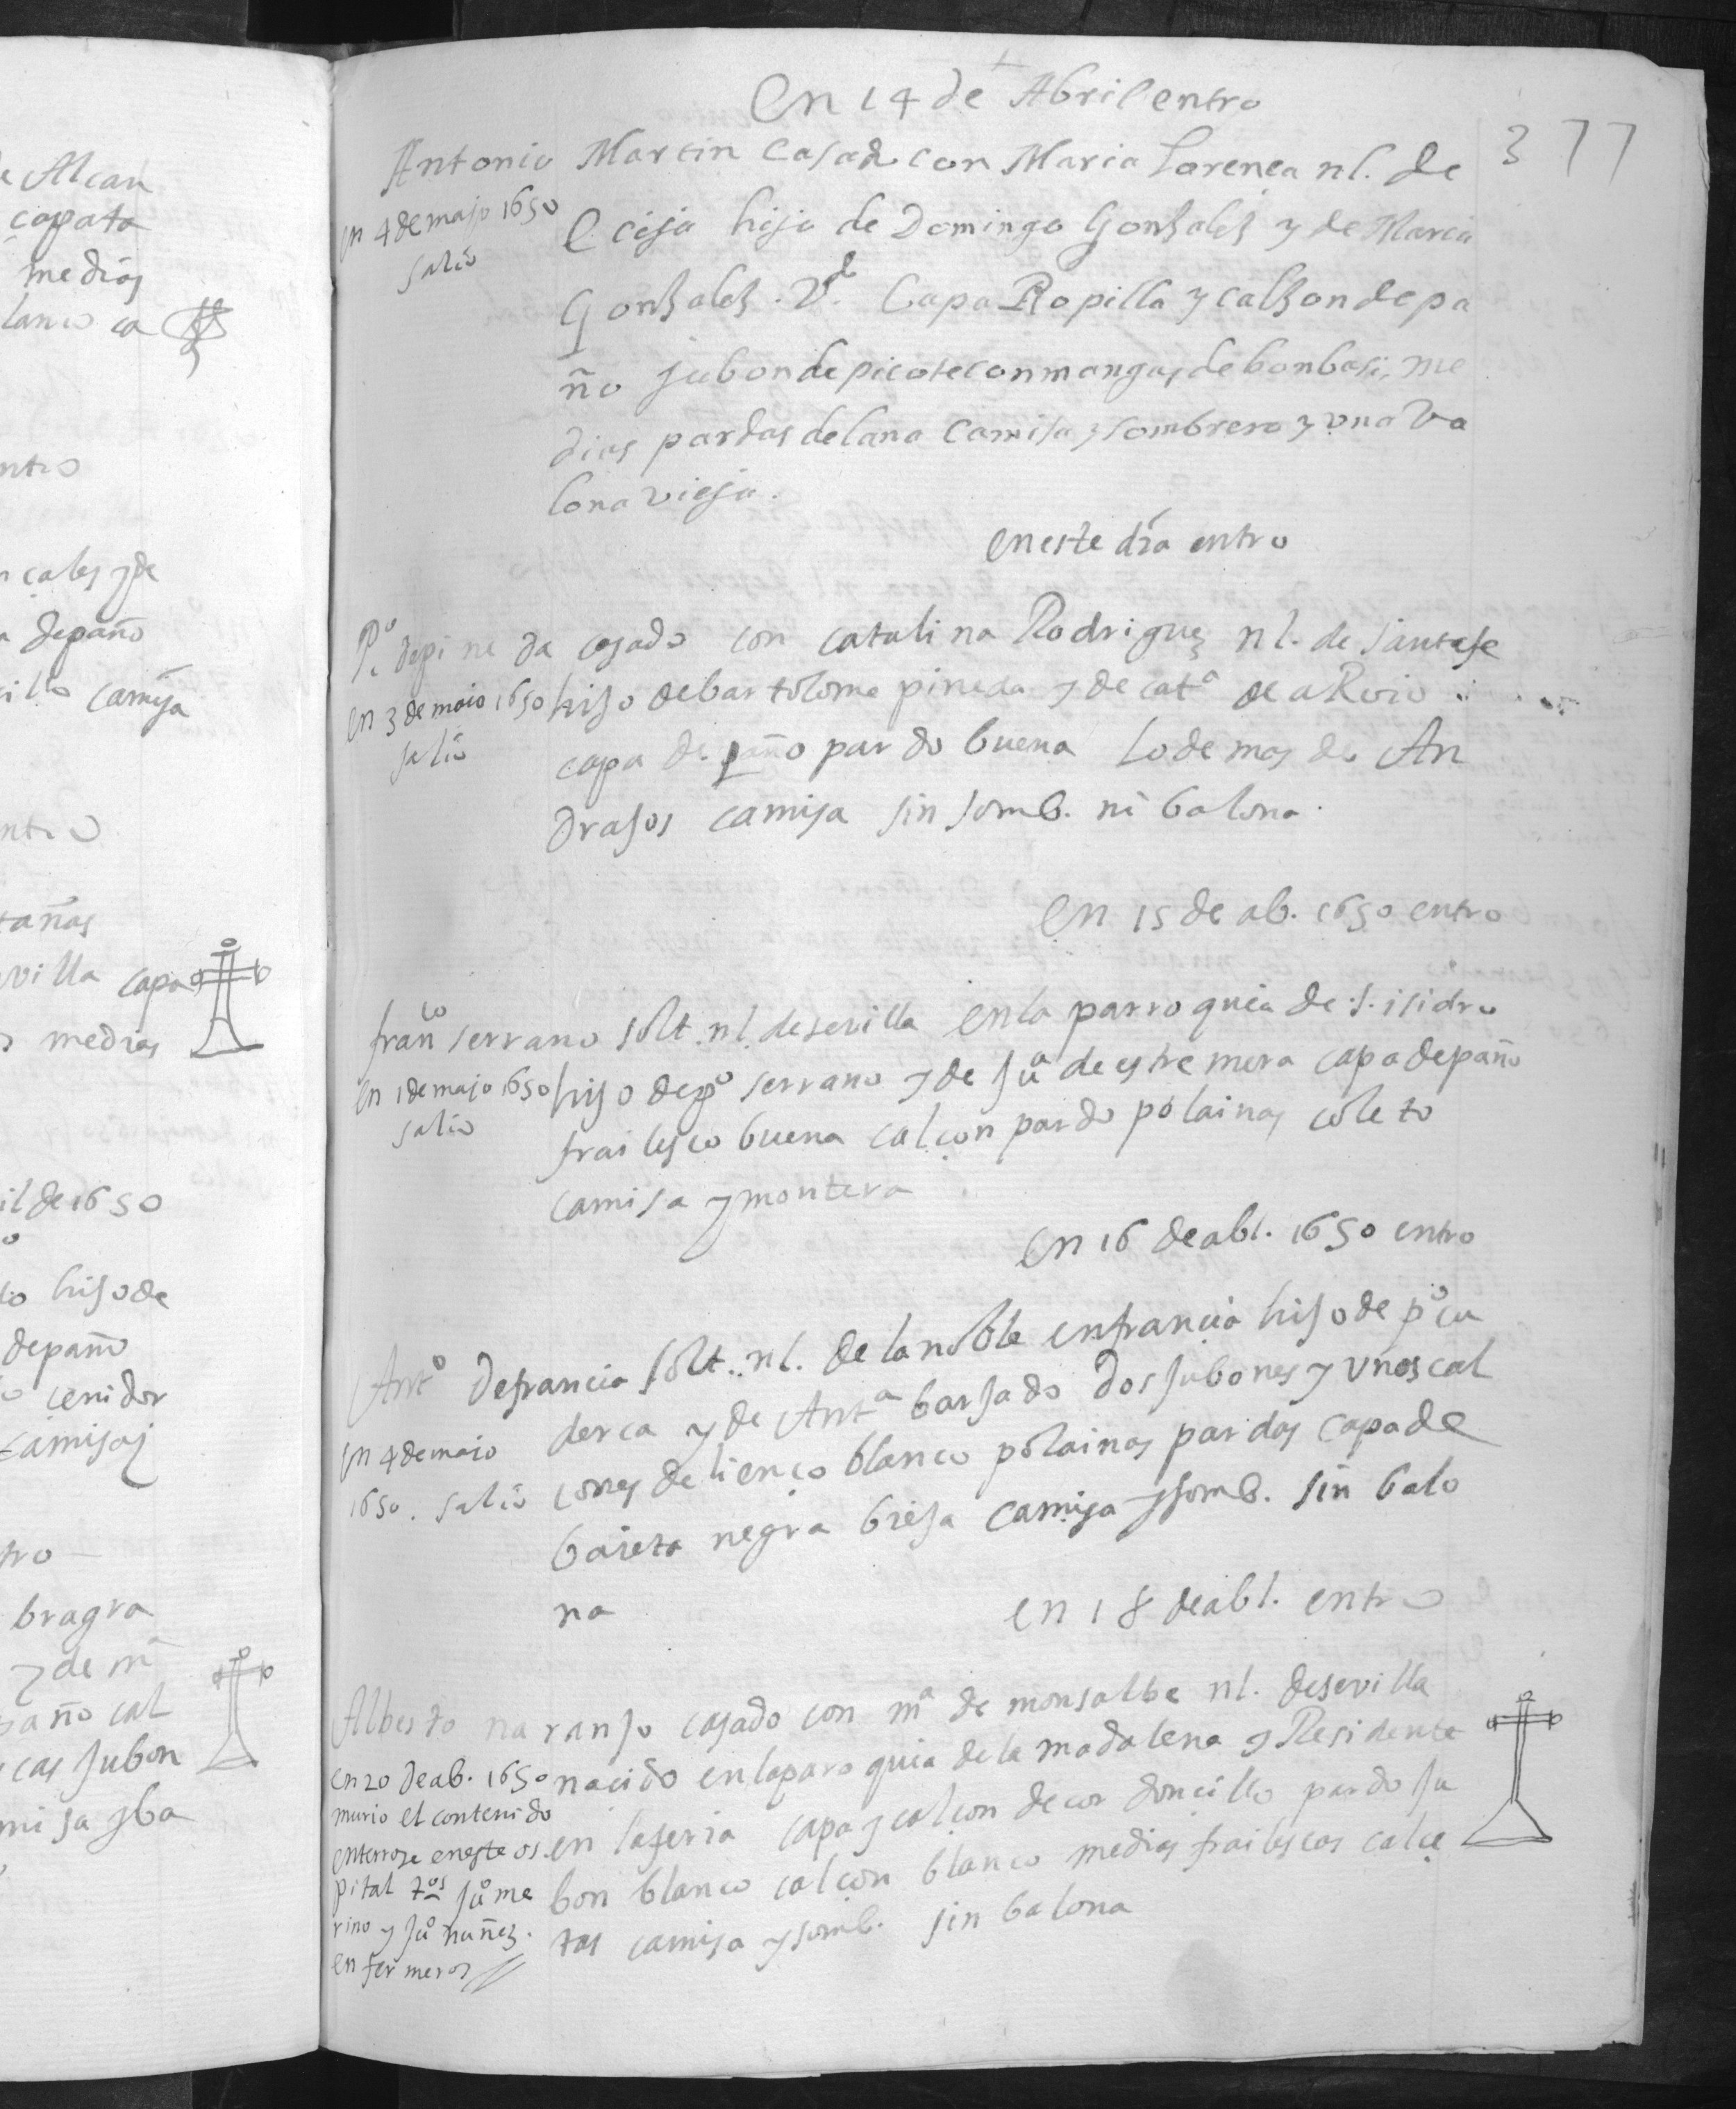 e Alcan
capato
medias
lanco ca
ntro
n cales y de
a de paño
illo camisa
ntro
tañas
villa capa
s medias
il de 1650
o
to hijo de
de paño
o cenidor
camisa j
tro
bragra
y de mª
paño cal
cas jubon
misa y ba
En 14 de Abril entro
377
Antonio Martin Casado con Maria Lorenca nl. de
en 4 de majo 1650
salio
Ecija hijo de Domingo Gonsales y de Maria
Gonsales. Vd. Capa Ropilla y calson de pa
ño jubon de picote con mangas de bonbasi, me
dias pardas de lana Camisa y sombrero y una va
lona vieja.
en este dia entro
Pº de pineda casado con catalina Rodriguez nl. de santafe
en 3 de maio 1650
salio
hijo de bartolome pineda y de catª de aRoio
capa de paño pardo buena lo demas de An
drajos camisa sin somb. ni balona.
En 15 de ab. 1650 entro
franco serrano solt. nl. de sevilla en la parroquia de s. isidro
en 1 de majo 1650
salio
hijo de pº serrano y de juª de estremera capa de paño
frailesco buena calçon pardo polainas coleto
camisa y montera
en 16 de abl. 1650 entro
Antº de francia solt. nl. de la noble en francia hijo de pº cu
en 4 de maio
1650. salio
derca y de Antª barjado dos jubones y unos cal
cones de lienço blanco polainas pardas capa de
baieta negra bieja camisa y somb. sin balo
na
en 18 de abl. entro
Alberto naranjo casado con mª de monsalbe nl. de sevilla
en 20 de ab. 1650
murio el contenido
enterrose en este os.
pital tºs juº me
rino y juº nuñes.
enfermeros
nacido en la paroquia de la madalena y Residente
en la feria capa y calçon de cordoncillo pardo ju
bon blanco calçon blanco medias frailescas calçe
tas camisa y somb. sin balona